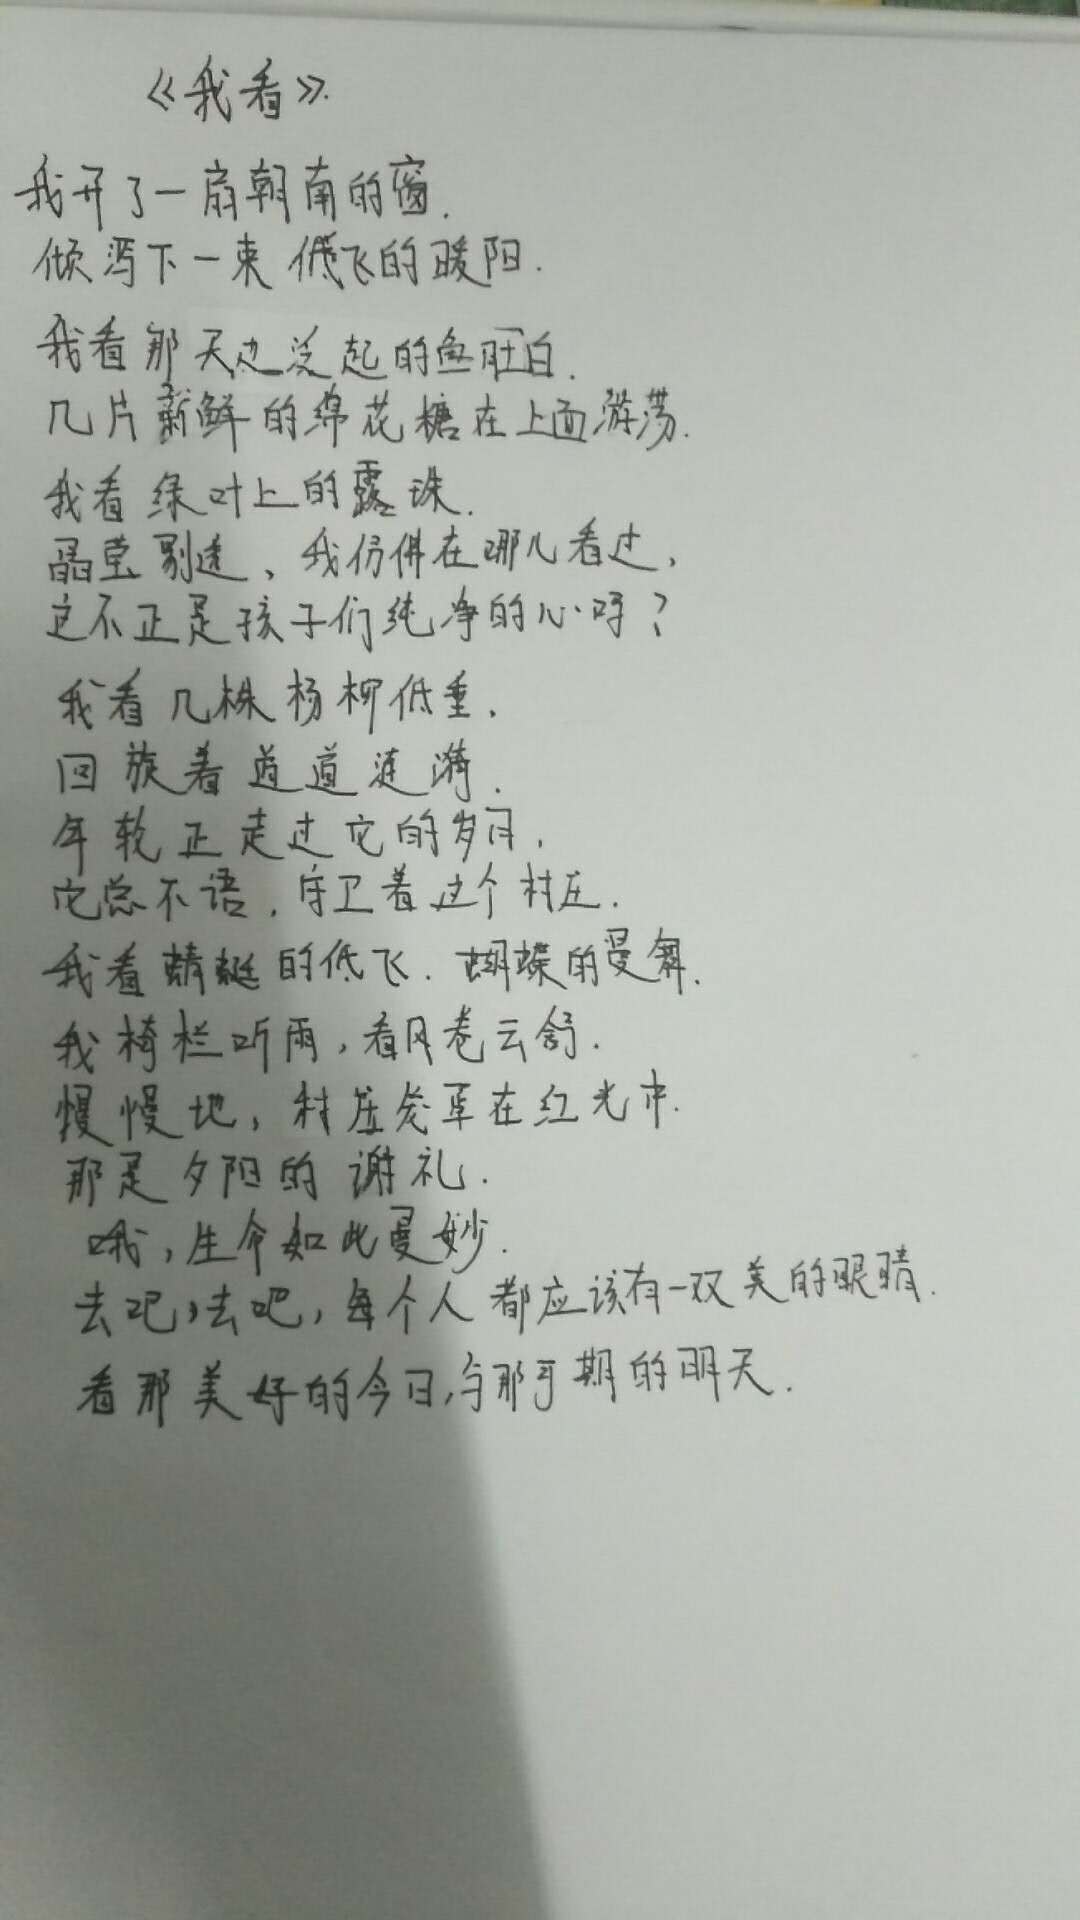 《我看》.
我开了一扇朝南的窗.
倾泻下一束低飞的暖阳.
我看那天边泛起的鱼肚白.
几片新鲜的绵花糖在上面游荡.
我看绿叶上的露珠.
晶莹剔透、我仿佛在哪儿看过,
这不正是孩子们纯净的心吗?
我看几株杨柳低垂.
回旋着道道涟漪.
年轮正走过它的岁月,
它总不语,守卫着这个村庄.
我看蜻蜓的低飞.蝴蝶的曼舞.
我椅栏听雨,看风卷云舒.
慢慢地,村庄笼罩在红光中.
那是夕阳的谢礼.
哦,生命如此曼妙.
去吧,去吧,每个人都应该有一双美的眼睛.
看那美好的今日,与那可期的明天.